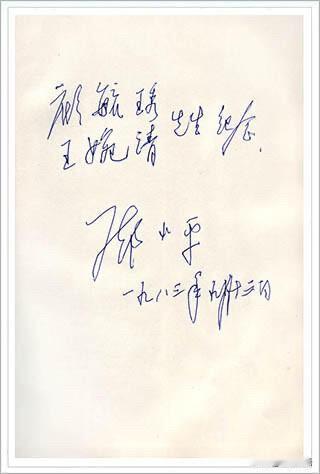 顾毓琇
王婉靖先生纪念
邓小平
一九八三年九月十三日